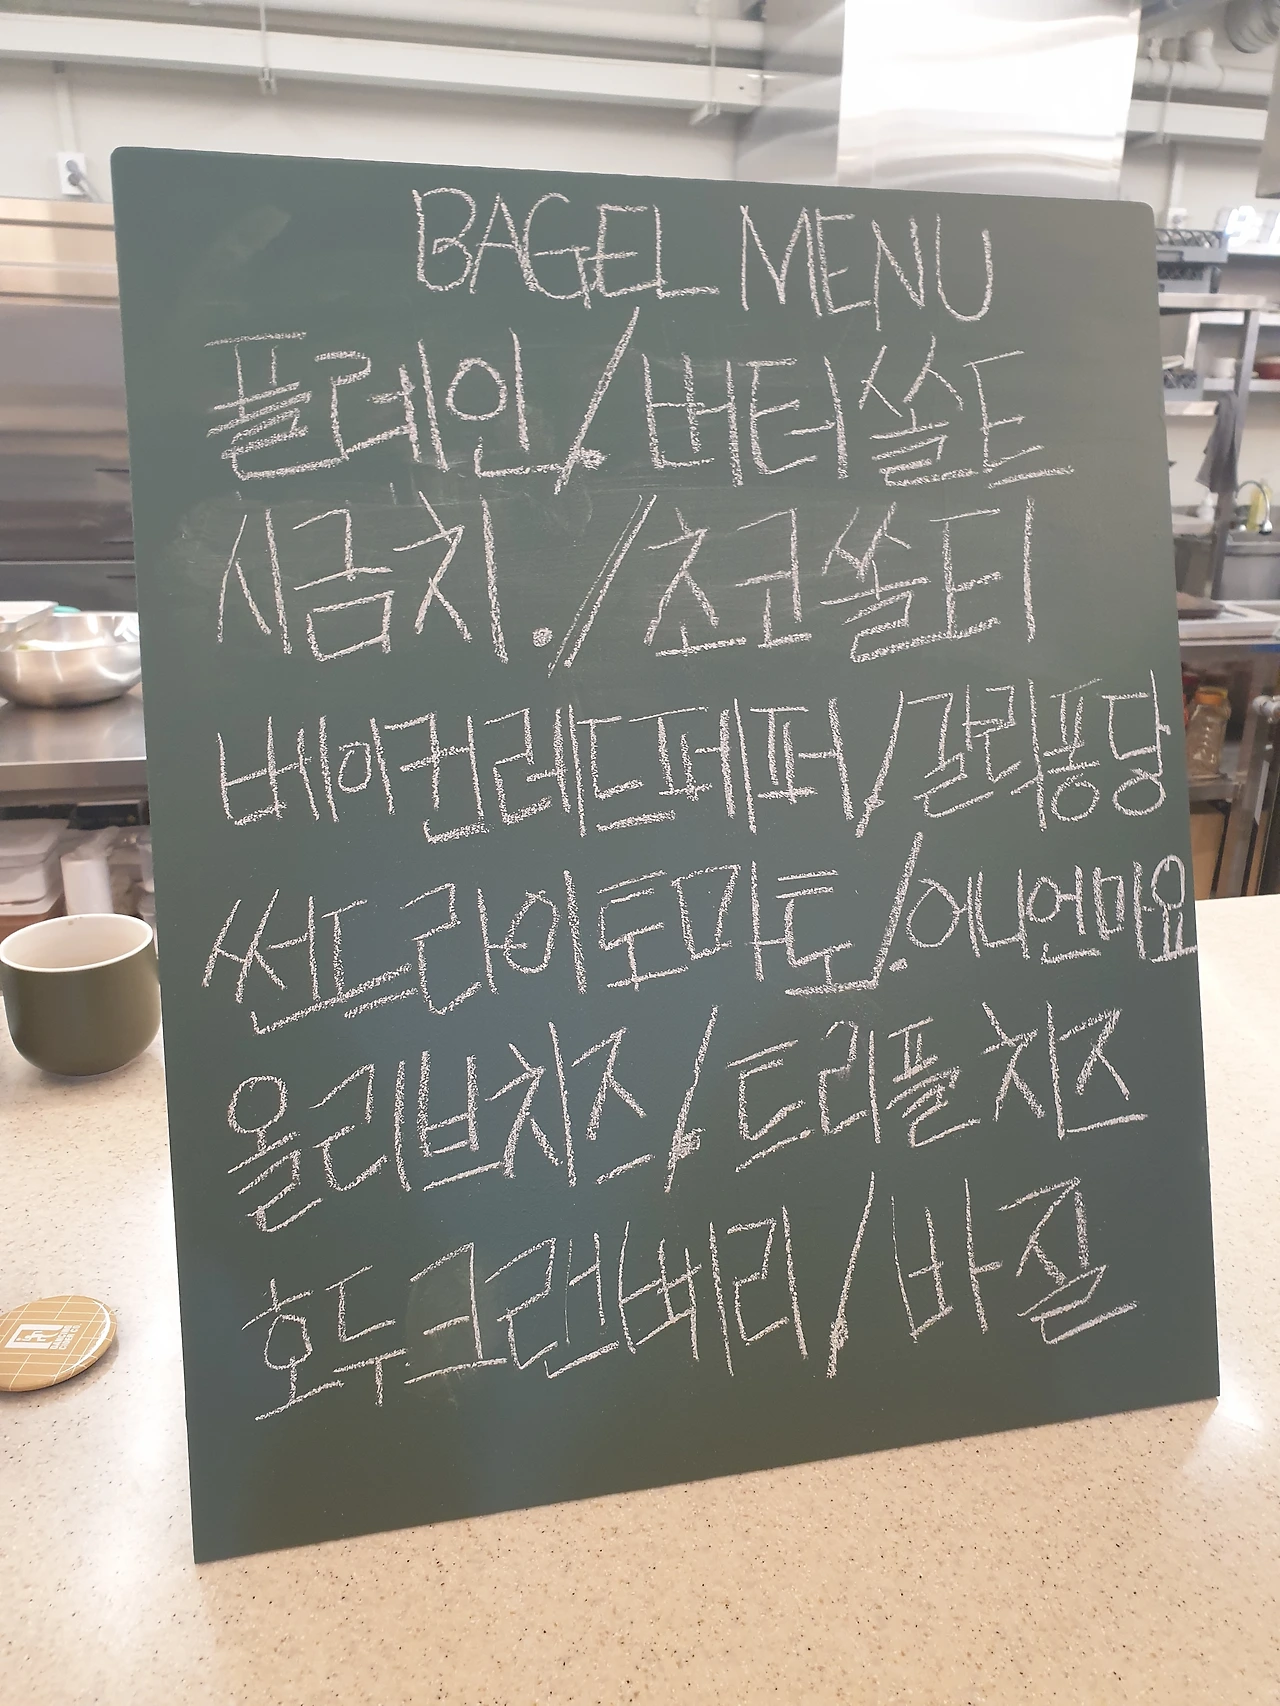 BAGEL MENU
플레인/버터쏠트
시금치./초코쏠티
베이컨레드페퍼/갈릭퐁당
썬드라이토마토/.어니언마요
올리브치즈/트리플치즈
호두크랜베리/바질